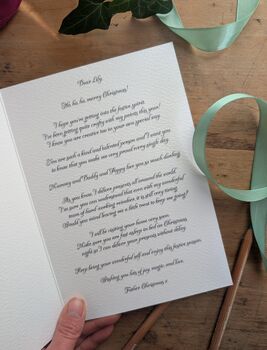 Dear Lily
Ho, ho, ho, merry Christmas!
I hope you're getting into the festive spirit.
I've been getting quite crafty with my paints this year!
I know you are creative too in your own special way.
You are such a kind and talented person and I want you
to know that you make me very proud every single day.
Mummy and Daddy and Poppy love you so much darling.
As you know, I deliver presents all around the world.
I'm sure you can understand that even with my wonderful
team of hard working reindeer, it is still very tiring.
Would you mind leaving me a little treat to keep me going?
I will be visiting your home very soon.
Make sure you are fast asleep in bed on Christmas
night so I can deliver your presents without delay.
Keep being your wonderful self and enjoy this festive season.
Wishing you lots of joy, magic, and love.
Father Christmas x